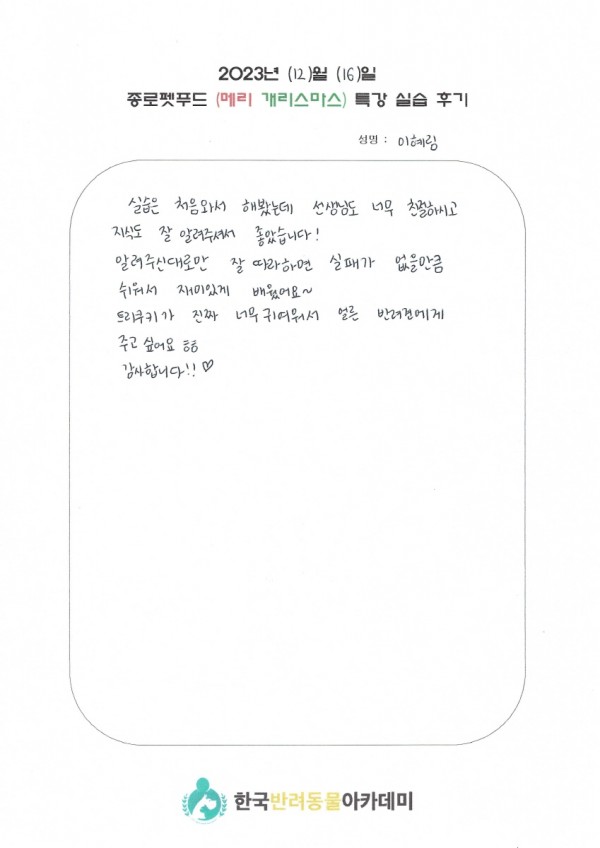 2023년 (12)월 (16)일
종로펫푸드 (메리 개리스마스) 특강 실습 후기
성명 : 이혜림
실습은 처음와서 해봤는데 선생님도 너무 친절하시고
지식도 잘 알려주셔서 좋았습니다!
알려주신대로만 잘 따라하면 실패가 없을만큼
쉬워서 재미있게 배웠어요~
트리쿠키가 진짜 너무 귀여워서 얼른 반려견에게
주고 싶어요 ㅎㅎ
감사합니다!! ♡
한국반려동물아카데미